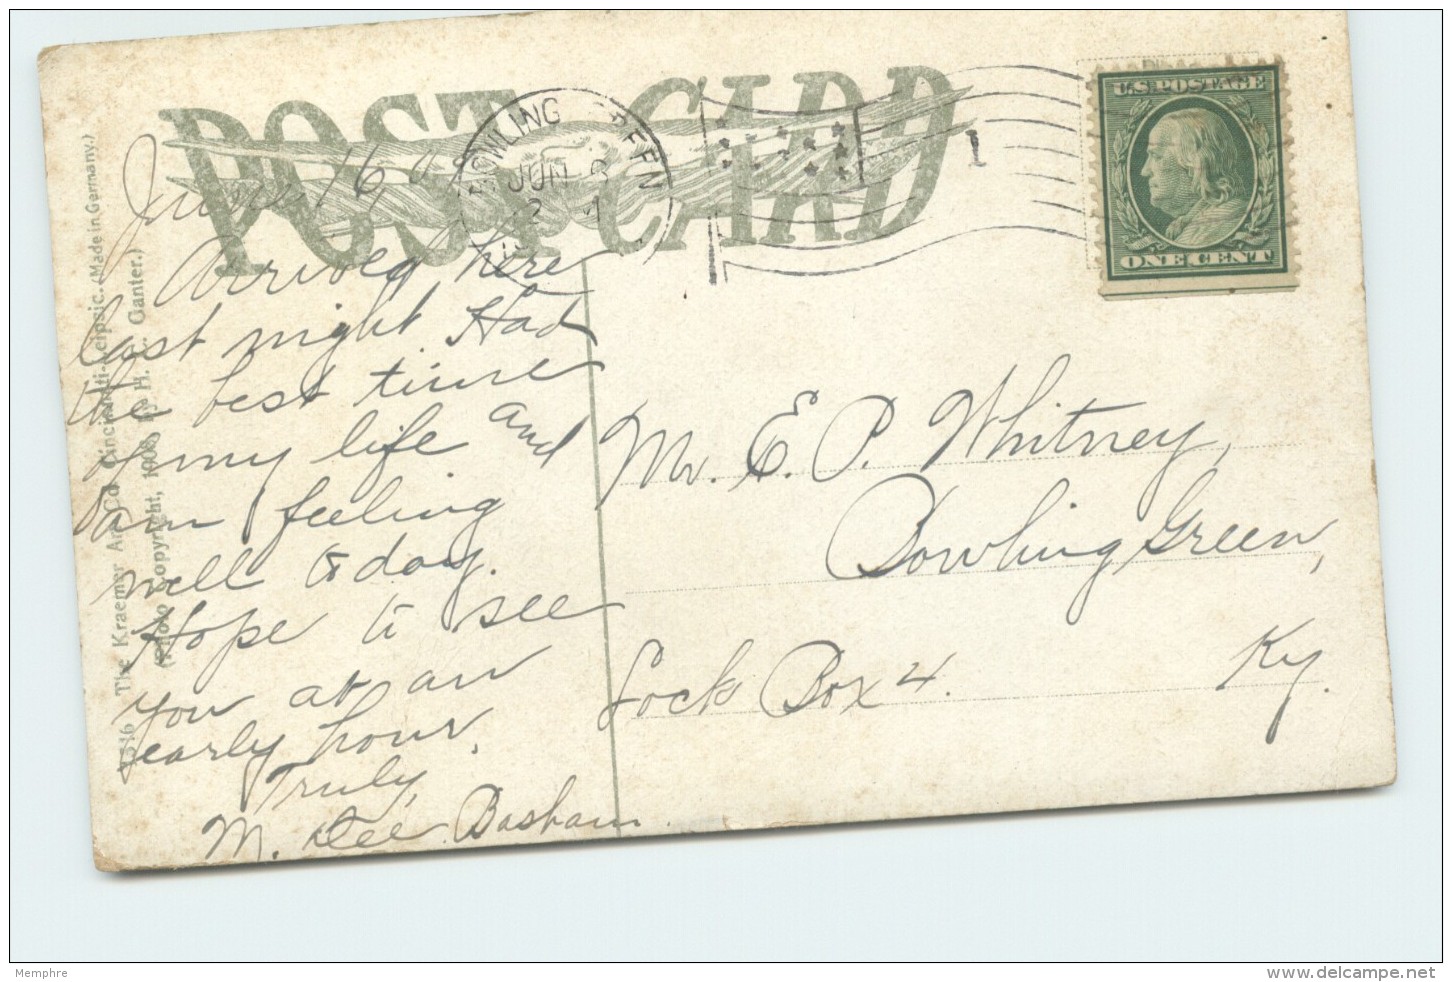 POST CARD
BOWLING GREEN
JUN
1
U.S. POSTAGE
ONE CENT
June 16
Arrived here
last night Had
the best time
of my life and
am feeling
well to day.
Hope to see
you at an
early hour.
Truly,
M. Dee Basham
Mr. E. P. Whitney,
Bowling Green,
Ky.
Lock Box 4.
The Kraemer Art Co Cincinnati-Leipsic. (Made in Germany.)
(Photo Copyright, 1908, by H. C. Ganter.)
Memphre
www.delcampe.net